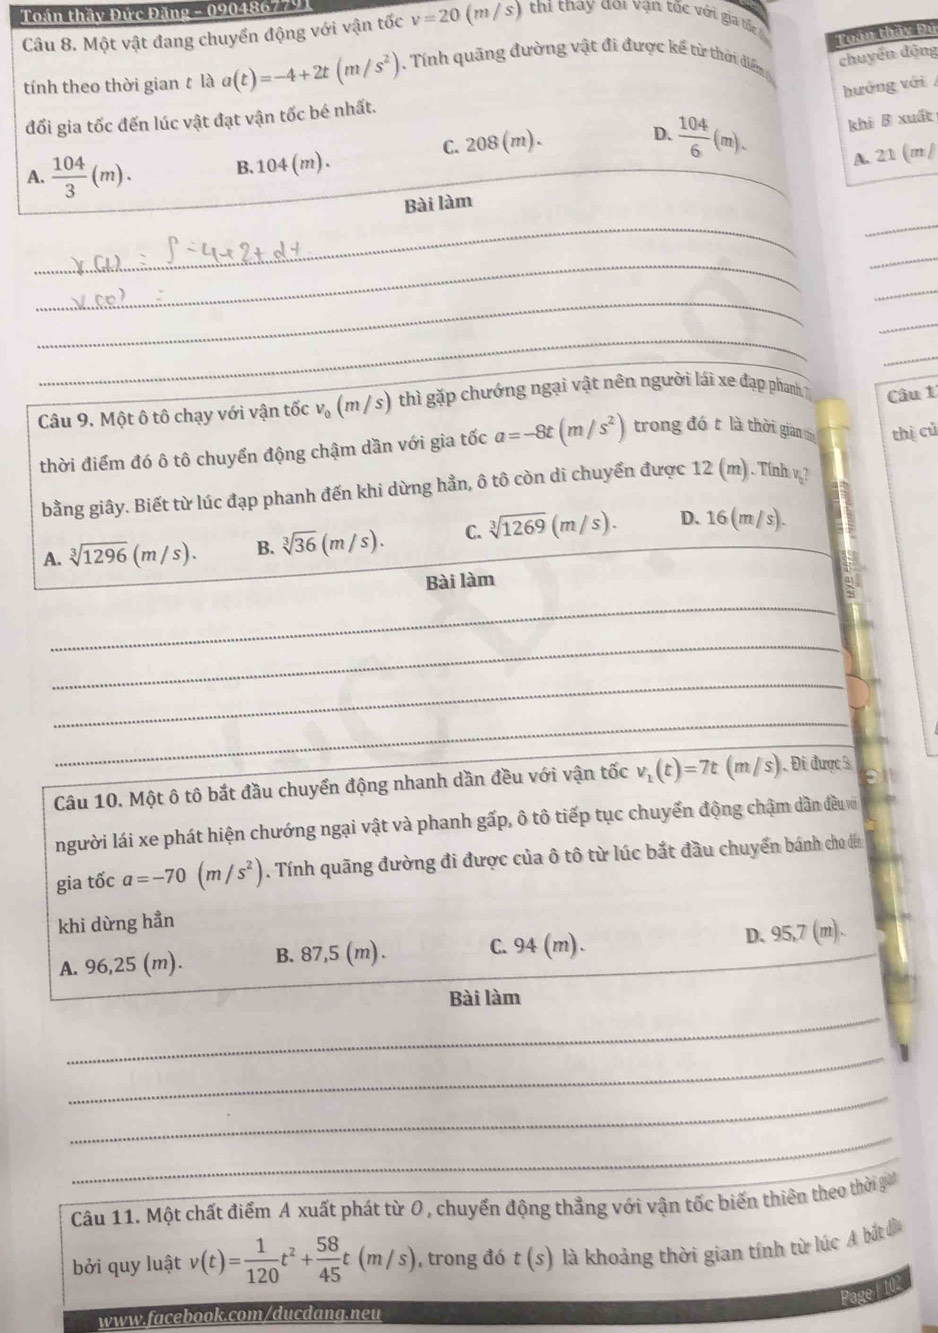 Toán thầy Đức Đăng - 0904867791
Câu 8. Một vật đang chuyển động với vận tốc v = 20 (m/s) thì thay đổi vận tốc với gia tốc
tính theo thời gian t là a(t) = -4 + 2t (m/s²). Tính quãng đường vật đi được kể từ thời điểm
đổi gia tốc đến lúc vật đạt vận tốc bé nhất.
A. 104/3 (m). B. 104 (m). C. 208 (m). D. 104/6 (m).
Bài làm
v(t) = ∫ -4+2t dt
v(0) =
Câu 9. Một ô tô chạy với vận tốc v₀ (m/s) thì gặp chướng ngại vật nên người lái xe đạp phanh
thời điểm đó ô tô chuyển động chậm dần với gia tốc a = -8t (m/s²) trong đó t là thời gian
bằng giây. Biết từ lúc đạp phanh đến khi dừng hẳn, ô tô còn di chuyển được 12 (m). Tính v₀?
A. ∛1296 (m/s). B. ∛36 (m/s). C. ∛1269 (m/s). D. 16 (m/s).
Bài làm
Câu 10. Một ô tô bắt đầu chuyển động nhanh dần đều với vận tốc v₁(t) = 7t (m/s). Đi được
người lái xe phát hiện chướng ngại vật và phanh gấp, ô tô tiếp tục chuyển động chậm dần đều với
gia tốc a = -70 (m/s²). Tính quãng đường đi được của ô tô từ lúc bắt đầu chuyển bánh cho đến
khi dừng hẳn
A. 96,25 (m). B. 87,5 (m). C. 94 (m). D. 95,7 (m).
Bài làm
Câu 11. Một chất điểm A xuất phát từ O, chuyển động thẳng với vận tốc biến thiên theo thời gian
bởi quy luật v(t) = 1/120 t² + 58/45 t (m/s), trong đó t (s) là khoảng thời gian tính từ lúc A bắt đầu
www.facebook.com/ducdang.neu
Page | 102
Toán thầy Đứ
chuyển động
hướng với
khi B xuất
A. 21 (m/
Câu 1
thị củ